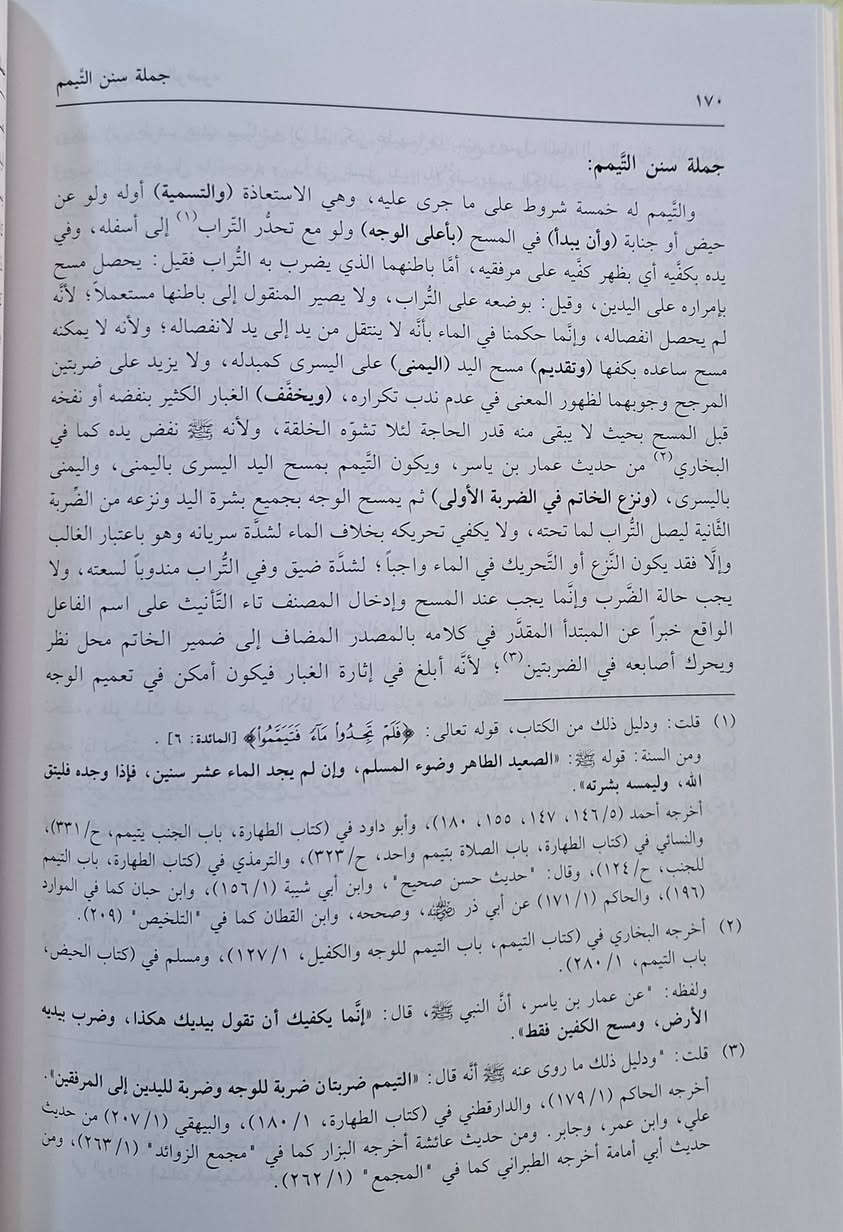 جملة سنن التَّيمم
١٧٠
جملة سنن التَّيمم:
والتَّيمم له خمسة شروط على ما جرى عليه، وهي الاستعاذة (والتسمية) أوله ولو عن
حيض أو جنابة (وأن يبدأ) في المسح (بأعلى الوجه) ولو مع تحدُّر التّراب(١) إلى أسفله، وفي
يده بكفَّيه أي بظهر كفَّيه على مرفقيه، أمَّا باطنهما الذي يضرب به التُّراب فقيل: يحصل مسح
بإمراره على اليدين، وقيل: بوضعه على التُّراب، ولا يصير المنقول إلى باطنها مستعملاً؛ لأنَّه
لم يحصل انفصاله، وإنَّما حكمنا في الماء بأنَّه لا ينتقل من يد إلى يد لانفصاله؛ ولأنه لا يمكنه
مسح ساعده بكفها (وتقديم) مسح اليد (اليمنى) على اليسرى كمبدله، ولا يزيد على ضربتين
المرجح وجوبهما لظهور المعنى في عدم ندب تكراره، (ويخفَّف) الغبار الكثير بنفضه أو نفخه
قبل المسح بحيث لا يبقى منه قدر الحاجة لئلا تشوّه الخلقة، ولأنه ﷺ نفض يده كما في
البخاري(٢) من حديث عمار بن ياسر، ويكون التَّيمم بمسح اليد اليسرى باليمنى، واليمنى
باليسرى، (ونزع الخاتم في الضربة الأولى) ثم يمسح الوجه بجميع بشرة اليد ونزعه من الضَّربة
الثَّانية ليصل التُّراب لما تحته، ولا يكفي تحريكه بخلاف الماء لشدَّة سريانه وهو باعتبار الغالب
وإلَّا فقد يكون النَّزع أو التَّحريك في الماء واجباً؛ لشدَّة ضيق وفي التُّراب مندوباً لسعته، ولا
يجب حالة الضَّرب وإنَّما يجب عند المسح وإدخال المصنف تاء التَّأنيث على اسم الفاعل
الواقع خبراً عن المبتدأ المقدَّر في كلامه بالمصدر المضاف إلى ضمير الخاتم محل نظر
ويحرك أصابعه في الضربتين(٣)؛ لأنَّه أبلغ في إثارة الغبار فيكون أمكن في تعميم الوجه
(١) قلت: ودليل ذلك من الكتاب، قوله تعالى: ﴿فَلَمْ تَجِدُواْ مَآءً فَتَيَمَّمُواْ﴾ [المائدة: ٦].
ومن السنة: قوله ﷺ: «الصعيد الطاهر وضوء المسلم، وإن لم يجد الماء عشر سنين، فإذا وجده فليتق
الله، وليمسه بشرته».
أخرجه أحمد (١٤٦/٥، ١٤٧، ١٥٥، ١٨٠)، وأبو داود في (كتاب الطهارة، باب الجنب يتيمم، ح/٣٣١)،
والنسائي في (كتاب الطهارة، باب الصلاة بتيمم واحد، ح/٣٢٣)، والترمذي في (كتاب الطهارة، باب التيمم
للجنب، ح/١٢٤)، وقال: "حديث حسن صحيح"، وابن أبي شيبة (١٥٦/١)، وابن حبان كما في الموارد
(١٩٦)، والحاكم (١٧١/١) عن أبي ذر رضي الله عنه، وصححه، وابن القطان كما في "التلخيص" (٢٠٩).
(٢) أخرجه البخاري في (كتاب التيمم، باب التيمم للوجه والكفيل، ١٢٧/١)، ومسلم في (كتاب الحيض،
باب التيمم، ٢٨٠/١).
ولفظه: "عن عمار بن ياسر، أنَّ النبي ﷺ، قال: «إنَّما يكفيك أن تقول بيديك هكذا، وضرب بيديه
الأرض، ومسح الكفين فقط».
(٣) قلت: "ودليل ذلك ما روى عنه ﷺ أنَّه قال: «التيمم ضربتان ضربة للوجه وضربة لليدين إلى المرفقين".
أخرجه الحاكم (١٧٩/١)، والدارقطني في (كتاب الطهارة، ١٨٠/١)، والبيهقي (٢٠٧/١) من حديث
علي، وابن عمر، وجابر. ومن حديث عائشة أخرجه البزار كما في "مجمع الزوائد" (٢٦٣/١)، ومن
حديث أبي أمامة أخرجه الطبراني كما في "المجمع" (٢٦٢/١).